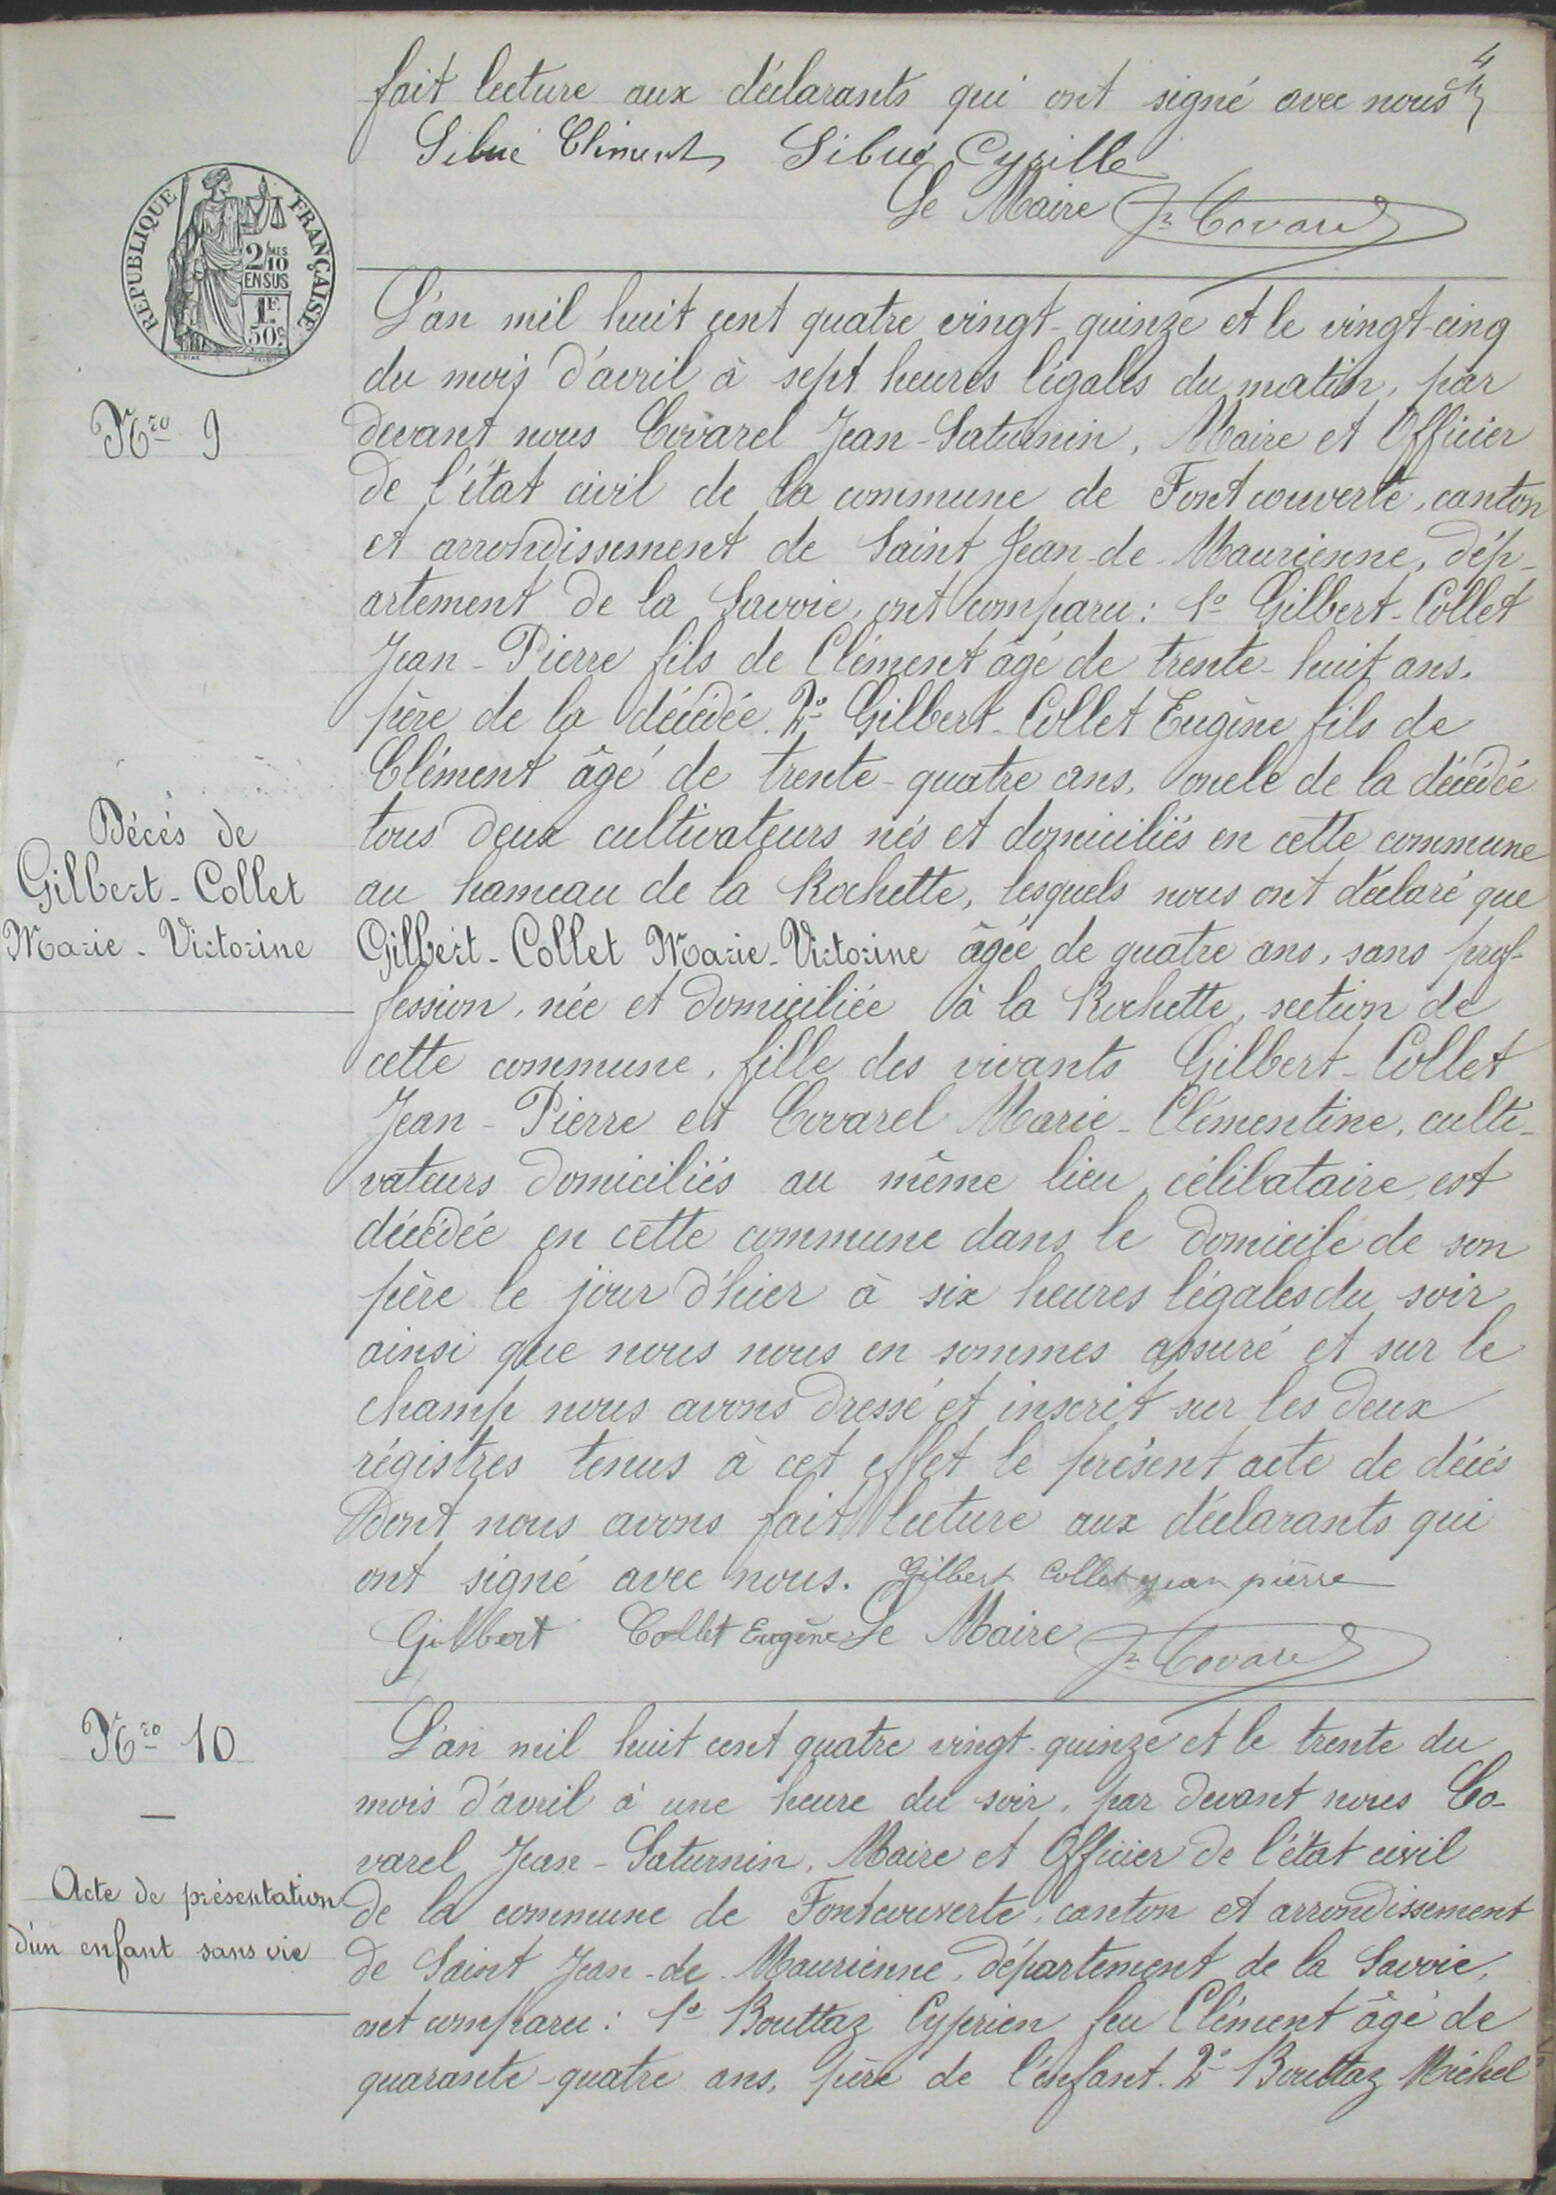 4
fait lecture aux déclarants qui ont signé avec nous
Sibué Clément Sibué Cyrille
Le Maire Jn Covarel
REPUBLIQUE FRANÇAISE
2/10MES
EN SUS
1F
50c
L'an mil huit cent quatre vingt-quinze et le vingt-cinq
du mois d'avril à sept heures légales du matin, par
Nro 9
devant nous Covarel Jean-Saturnin, Maire et Officier
de l'état civil de la commune de Fontcouverte, canton
et arrondissement de Saint Jean-de-Maurienne, dép-
artement de la Savoie, ont comparu: 1o Gilbert-Collet
Jean-Pierre fils de Clément âgé de trente-huit ans,
père de la décédée. 2o Gilbert-Collet Eugène fils de
Clément âgé de trente-quatre ans, oncle de la décédée
tous deux cultivateurs nés et domiciliés en cette commune
Décès de
Gilbert-Collet
Marie-Victorine
au hameau de la Rochette, lesquels nous ont déclaré que
Gilbert-Collet Marie-Victorine âgée de quatre ans, sans prof-
fession, née et domiciliée à la Rochette, section de
cette commune, fille des vivants Gilbert-Collet
Jean-Pierre et Covarel Marie-Clémentine, culti-
vateurs domiciliés au même lieu, célibataire, est
décédée en cette commune dans le domicile de son
père le jour d'hier à six heures légales du soir
ainsi que nous nous en sommes assuré et sur le
champ nous avons dressé et inscrit sur les deux
régistres tenus à cet effet le présent acte de décés
Dont nous avons fait lecture aux déclarants qui
ont signé avec nous. Gilbert Collet jean pierre
Gilbert Collet Eugène Le Maire Jn Covarel
Nro 10
L'an mil huit cent quatre vingt-quinze et le trente du
mois d'avril à une heure du soir, par devant nous Co-
varel Jean-Saturnin, Maire et Officier de l'état civil
Acte de présentation
d'un enfant sans vie
de la commune de Fontcouverte, canton et arrondissement
de Saint Jean-de-Maurienne, département de la Savoie,
ont comparu: 1o Bouttaz Cyprien feu Clément âgé de
quarante-quatre ans, père de l'enfant. 2o Bouttaz Michel